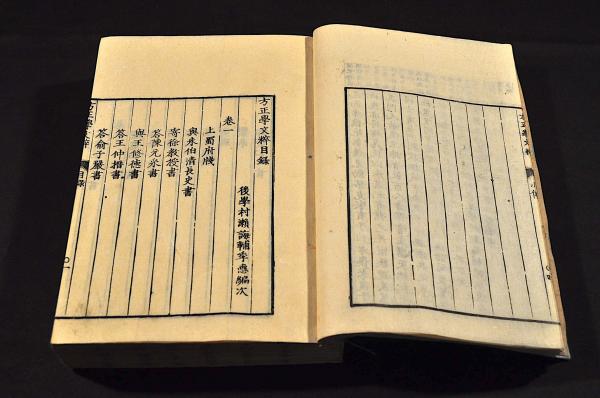 方正學文粹
方正學文粹目録
後學村瀨誨輔季應編次
卷一
上蜀府牋
與朱伯清長史書
寄徐教授書
答陳元采書
與王修德書
答王仲搢書
答俞子嚴書
方正學文粹 目録 〇一